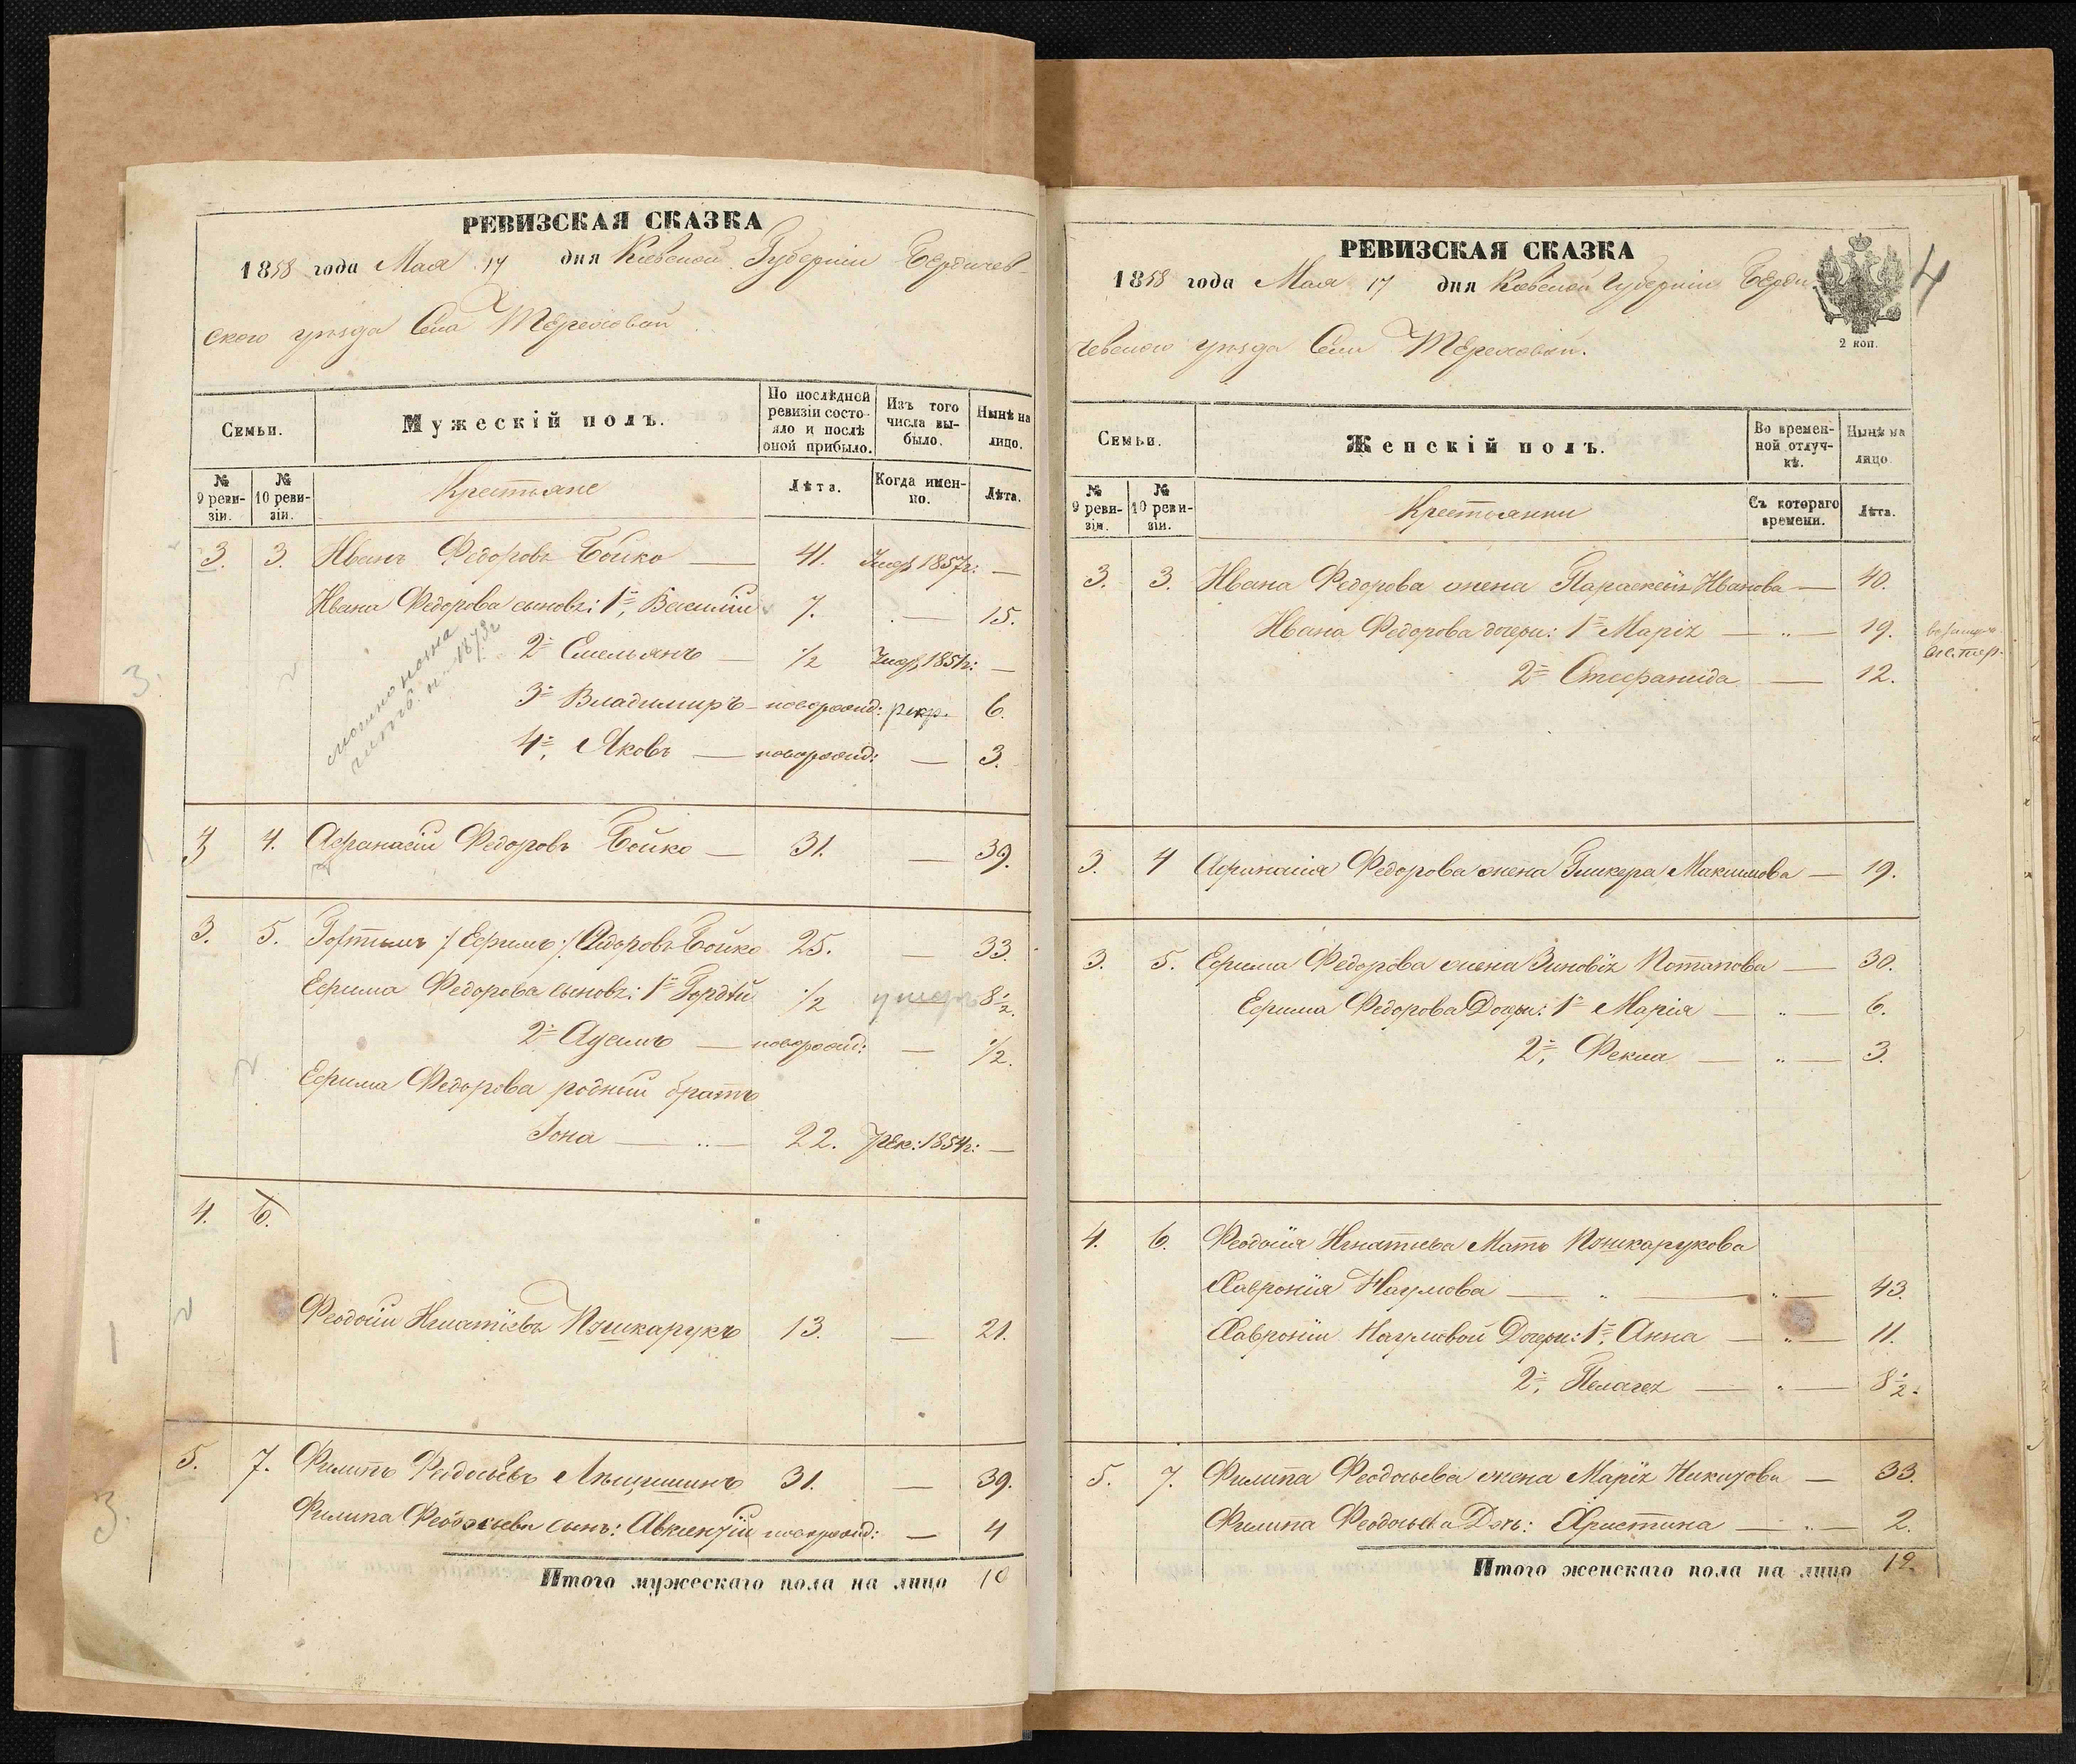 РЕВИЗСКАЯ СКАЗКА
1858 года Мая 17 дня Кіевской Губерніи Бердичев-
ского уѣзда Села Терехова
Семьи.
Мужескій полъ.
По послѣдней ревизіи состояло и послѣ оной прибыло.
Изъ того числа выбыло.
Нынѣ на лицо.
№ 9 ревизіи.
№ 10 ревизіи.
Крестьяне
Лѣта.
Когда именно.
Лѣта.
3. 3. Иванъ Федоровъ Бойко — 41. Умеръ 1857г: —
Ивана Федорова сыновья: 1й, Василій 7. — 15.
2й Емельянъ — 1/2 Умеръ 1851г: —
3й Владимиръ — новорожд: рекр. 6.
4й, Яковъ — новорожд: — 3.
1873г
3 4. Афанасій Федоровъ Бойко — 31. — 39.
3. 5. /Ефимъ/ Федоровъ Бойко 25. — 33.
Ефима Федорова сыновья: 1й Гордѣй 1/2 умеръ 8 1/2.
2й Адамъ — новорожд: — 1/2.
Ефима Федорова родный братъ
Іона — 22. Рек: 1854г: —
4. 6.
Феодосій Игнатіевъ Пошкарукъ 13. — 21.
5. 7. Филипъ Феодосіевъ 31. — 39.
Филипа Феодосіева сынъ: Авксентій новорожд: — 4
Итого мужескаго пола на лицо 10
РЕВИЗСКАЯ СКАЗКА
4
1858 года Мая 17 дня Кіевской Губерніи Берди-
чевского уѣзда Села Тереховой.
2 коп.
Семьи.
Женскій полъ.
Во временной отлучкѣ.
Нынѣ на лицо
№ 9 ревизіи.
№ 10 ревизіи.
Крестьянки
Съ котораго времени.
Лѣта.
3. 3. Ивана Федорова жена Параскевія Иванова — 40.
Ивана Федорова дочери: 1я Марія — " — 19.
2я Стефанида — 12.
3. 4 Афанасія Федорова жена Гликера Максимова — 19.
3. 5. Ефима Федорова жена Зиновія Потапова — 30.
Ефима Федорова Дочери: 1я Марія — " — 6.
2я, Фекла — " — 3.
4. 6. Феодосія Игнатіева Мать Пошкарукова
Хавронія Наумова — " — 43.
Хавроніи Наумовой Дочери: 1я, Анна — " — 11.
2я, Пелагея — " — 8 1/2.
5. 7. Филипа Феодосіева жена Марія Никитова — 33.
Филипа Феодосіева Дочь: Христина — " — 2.
Итого женскаго пола на лицо 12.